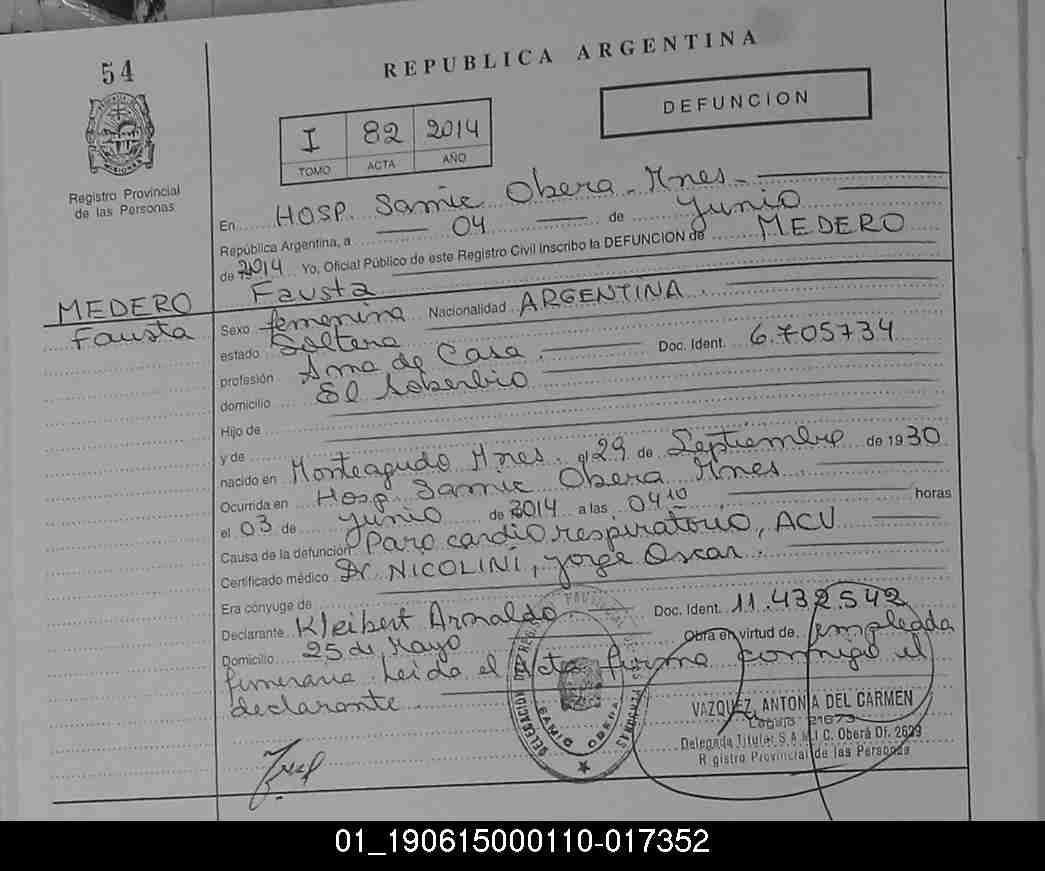 54
REPUBLICA ARGENTINA
DEFUNCION
I 82 2014
TOMO ACTA AÑO
Registro Provincial
de las Personas
En HOSP. Samic Obera - Mnes -
República Argentina, a 04 de Junio
de 2014 Yo, Oficial Público de este Registro Civil Inscribo la DEFUNCION de MEDERO
Fausta
MEDERO
Fausta
Sexo femenina Nacionalidad ARGENTINA
estado Soltera
profesión Ama de Casa Doc. Ident. 6.705734
domicilio El Soberbio
Hijo de
y de
nacido en Monteagudo Mnes. el 29 de Septiembre de 1930
Ocurrida en Hosp. Samic Obera Mnes
el 03 de Junio de 2014 a las 04 10 horas
Causa de la defunción Paro cardiorespiratorio, ACV
Certificado médico Dr. NICOLINI, Jorge Oscar.
Era cónyuge de
Declarante Kleibert Arnaldo Doc. Ident. 11.432542
Domicilio 25 de Mayo Obra en virtud de empleada
funeraria. Leida el acta firma conmigo el
declarante.
DELEGACION DEL REG. PERSONAS
SAMIC OBERA
VAZQUEZ, ANTONIA DEL CARMEN
Delegada Titular S.A.M.I.C. Oberá Of. 2699
Registro Provincial de las Personas
01_190615000110-017352